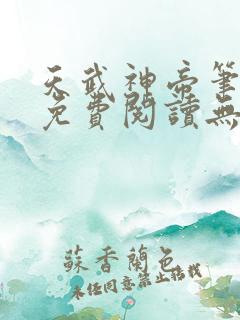 天武神帝筆
免費閱讀無
蘇香蘭色
未經同意禁止轉載